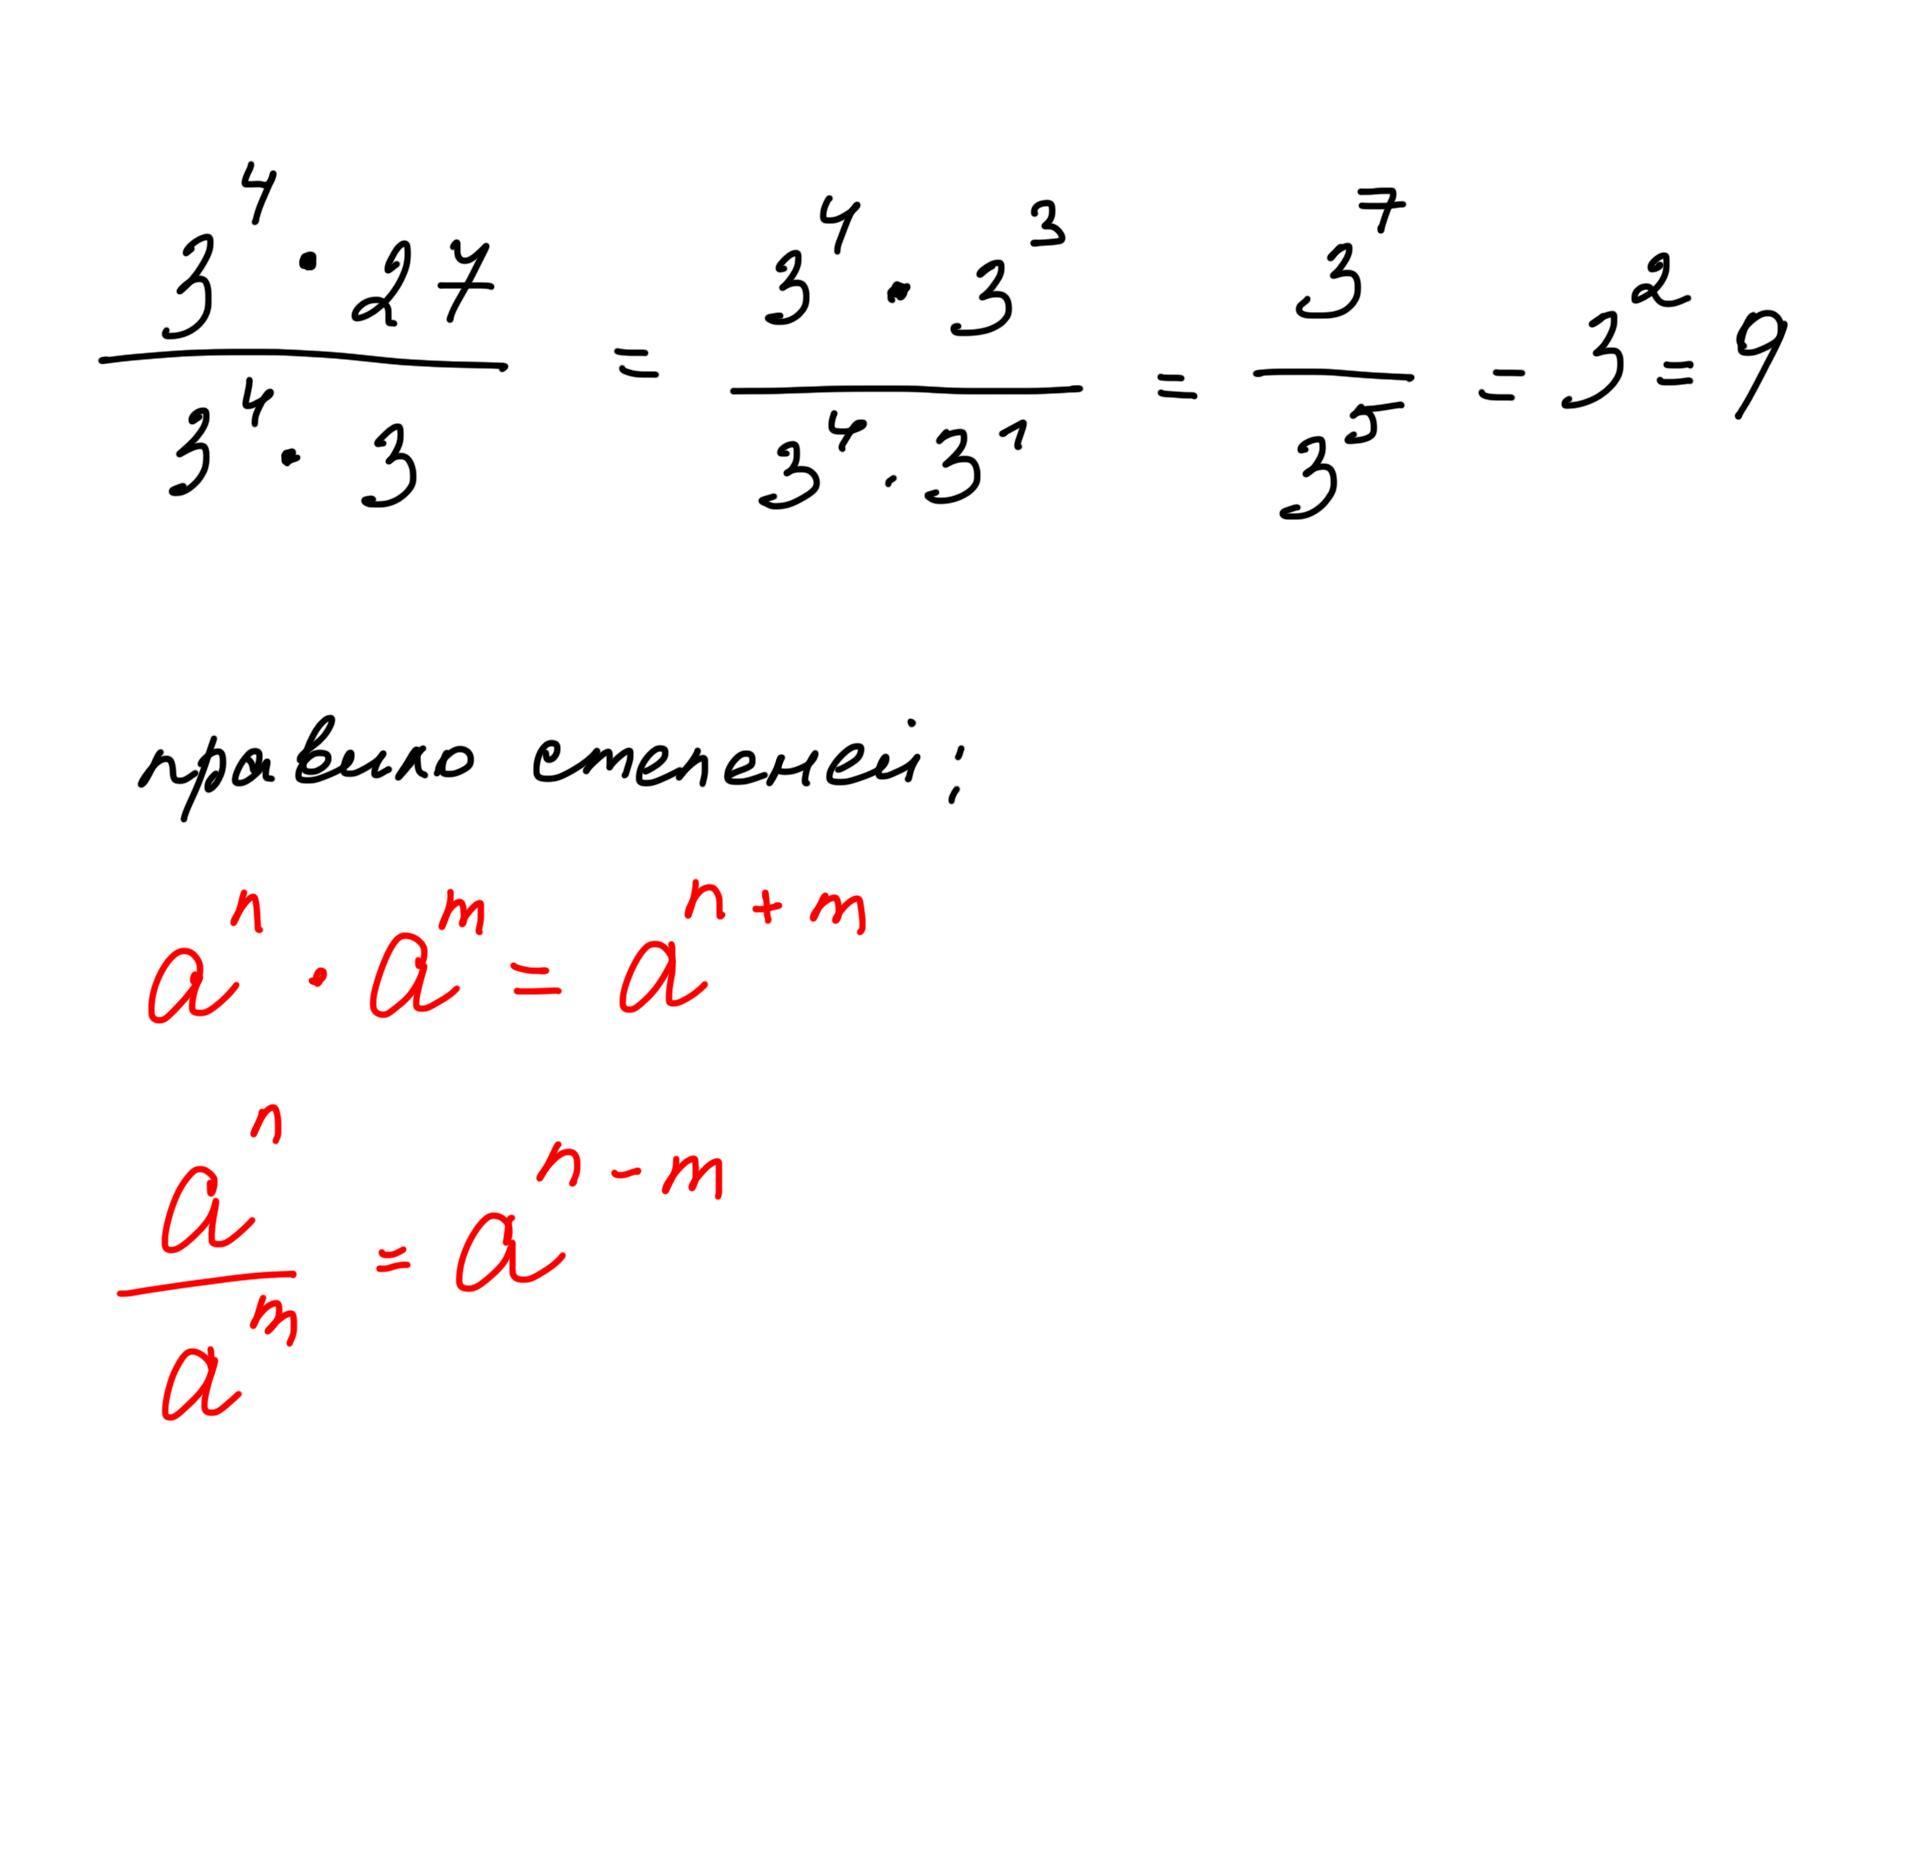 3⁴ · 27 / 3⁴ · 3 = 3⁴ · 3³ / 3⁴ · 3¹ = 3⁷ / 3⁵ = 3² = 9
правило степеней:
aⁿ · aᵐ = aⁿ⁺ᵐ
aⁿ / aᵐ = aⁿ⁻ᵐ